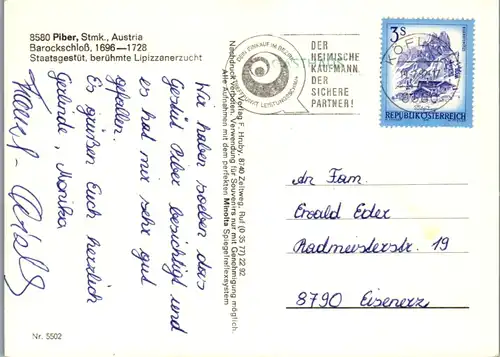 8580 Piber, Stmk., Austria
Barockschloß, 1696—1728
Staatsgestüt, berühmte Lipizzanerzucht
Wir haben soeben das
Gestüt Piber besichtigt und
es hat mir sehr gut
gefallen.
Es grüßen Euch herzlich
Gerlinde, Monika
Nr. 5502
Verlag F. Hruby, 8740 Zeltweg, Ruf (0 35 77) 22 92
Nachdruck verboten. Verwendung für Souvenirs nur mit Genehmigung möglich.
Alle Aufnahmen mit dem perfekten Minolta Spiegelreflexsystem
DEIN EINKAUF IM BEZIRK
LEISTUNGSSCHAU
DER
HEIMISCHE
KAUFMANN,
DER
SICHERE
PARTNER!
3S
REPUBLIK ÖSTERREICH
KÖFLACH
8580
An Fam.
Ewald Eder
Radmeisterstr. 19
8790 Eisenerz